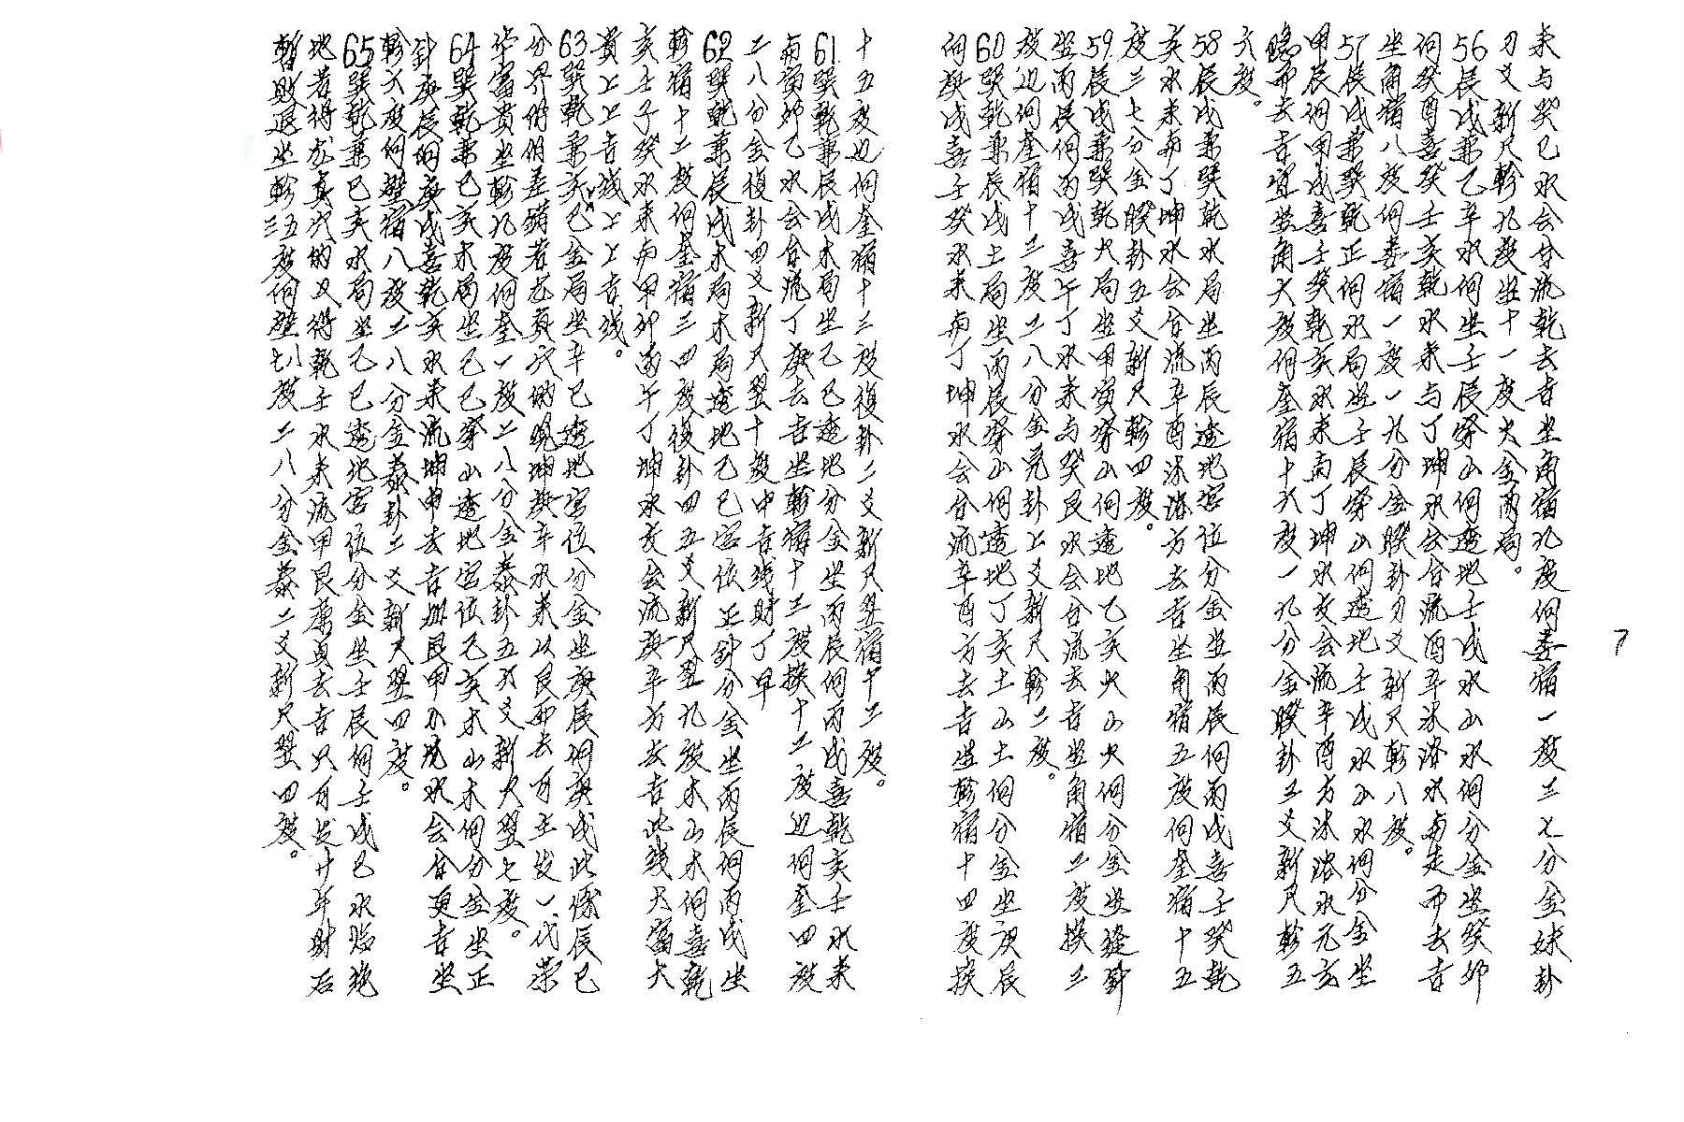 来与癸巳水会合流乾去吉坐角宿九度向娄宿一度三七分金妹卦
刃爻新尺轸九度坐十一度火金两局。
56辰戌兼乙辛水向坐壬辰穿山向透地壬戌水山水向分金坐癸卯
向癸酉喜癸壬亥乾水来与丁坤水会合流酉辛沐浴水南走而去吉
坐角宿八度向娄宿一度一九分金睽卦刃爻新尺轸八度。
57辰戌兼巽乾正向水局坐壬辰穿山向透地壬戌水山水向分金坐
甲辰向甲戌喜壬癸乾亥水来南丁坤水交会流辛酉方沐浴水元亥
隐而去吉宜坐角六度向奎宿十六度一九分金睽卦五爻新尺轸五
六度。
58辰戌兼巽乾水局坐丙辰透地宫位分金坐丙辰向丙戌喜壬癸乾
亥水来南丁坤水会合流辛酉沐浴方去吉坐角宿五度向奎宿十五
度三七分金睽卦五爻新尺轸四度。
59辰戌兼巽乾火局坐甲寅穿山向透地乙亥火山火向分金坐缝针
坐丙辰向丙戌喜午丁水来与癸艮水会合流去吉坐角宿二度挨三
度边向奎宿十三度二八分金兑卦上爻新尺轸二度。
60巽乾兼辰戌土局坐丙辰穿山向透地丁亥土山土向分金坐庚辰
向庚戌喜壬癸水来南丁坤水会合流辛酉方去吉坐轸宿十四度挨
十五度边向奎宿十三度復卦二爻新尺翌宿十二度。
61巽乾兼辰戌木局坐乙巳透地分金坐丙辰向丙戌喜乾亥壬水来
南寅卯乙水会合流丁庚去吉坐轸宿十二度挨十二度边向奎四度
二八分金復卦四爻新尺翌十度中吉线财丁早
62巽乾兼辰戌木局木局透地乙巳宫位正针分金坐丙辰向丙戌坐
轸宿十二度向奎宿三四度復卦四五爻新尺翌九度木山木向喜乾
亥壬子癸水来南甲卯丙午丁坤水交会流庚辛方去吉此线大富大
贵上上吉线上上吉线。
63巽乾兼亥巳金局坐辛巳透地宫位分金坐庚辰向庚戌此缘辰巳
分界俏俏差错若龙真穴的现坤庚辛水来以艮而去可主发一代荣
华富贵坐轸九度向奎一度二八分金泰卦五六爻新尺翌七度。
64巽乾兼巳亥木局坐己巳穿山透地宫位己亥木山木向分金坐正
针庚辰向庚戌喜乾亥水来流坤申去吉与艮甲小水会合更吉坐
轸六度向壁宿八度二八分金泰卦二爻新尺翌四度。
65巽乾兼巳亥水局坐乙巳透地宫位分金坐壬辰向壬戌巳水临绝
地若得龙真穴的又得乾壬水来流甲艮廉贞去吉只可发廿年财后
暂败退坐轸三五度向壁七八度二八分金泰二爻新尺翌四度。
7